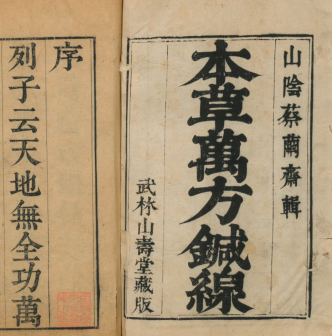 山陰蔡繭齋輯
本草萬方鍼線
武林山壽堂藏版
序
列子云天地無全功萬